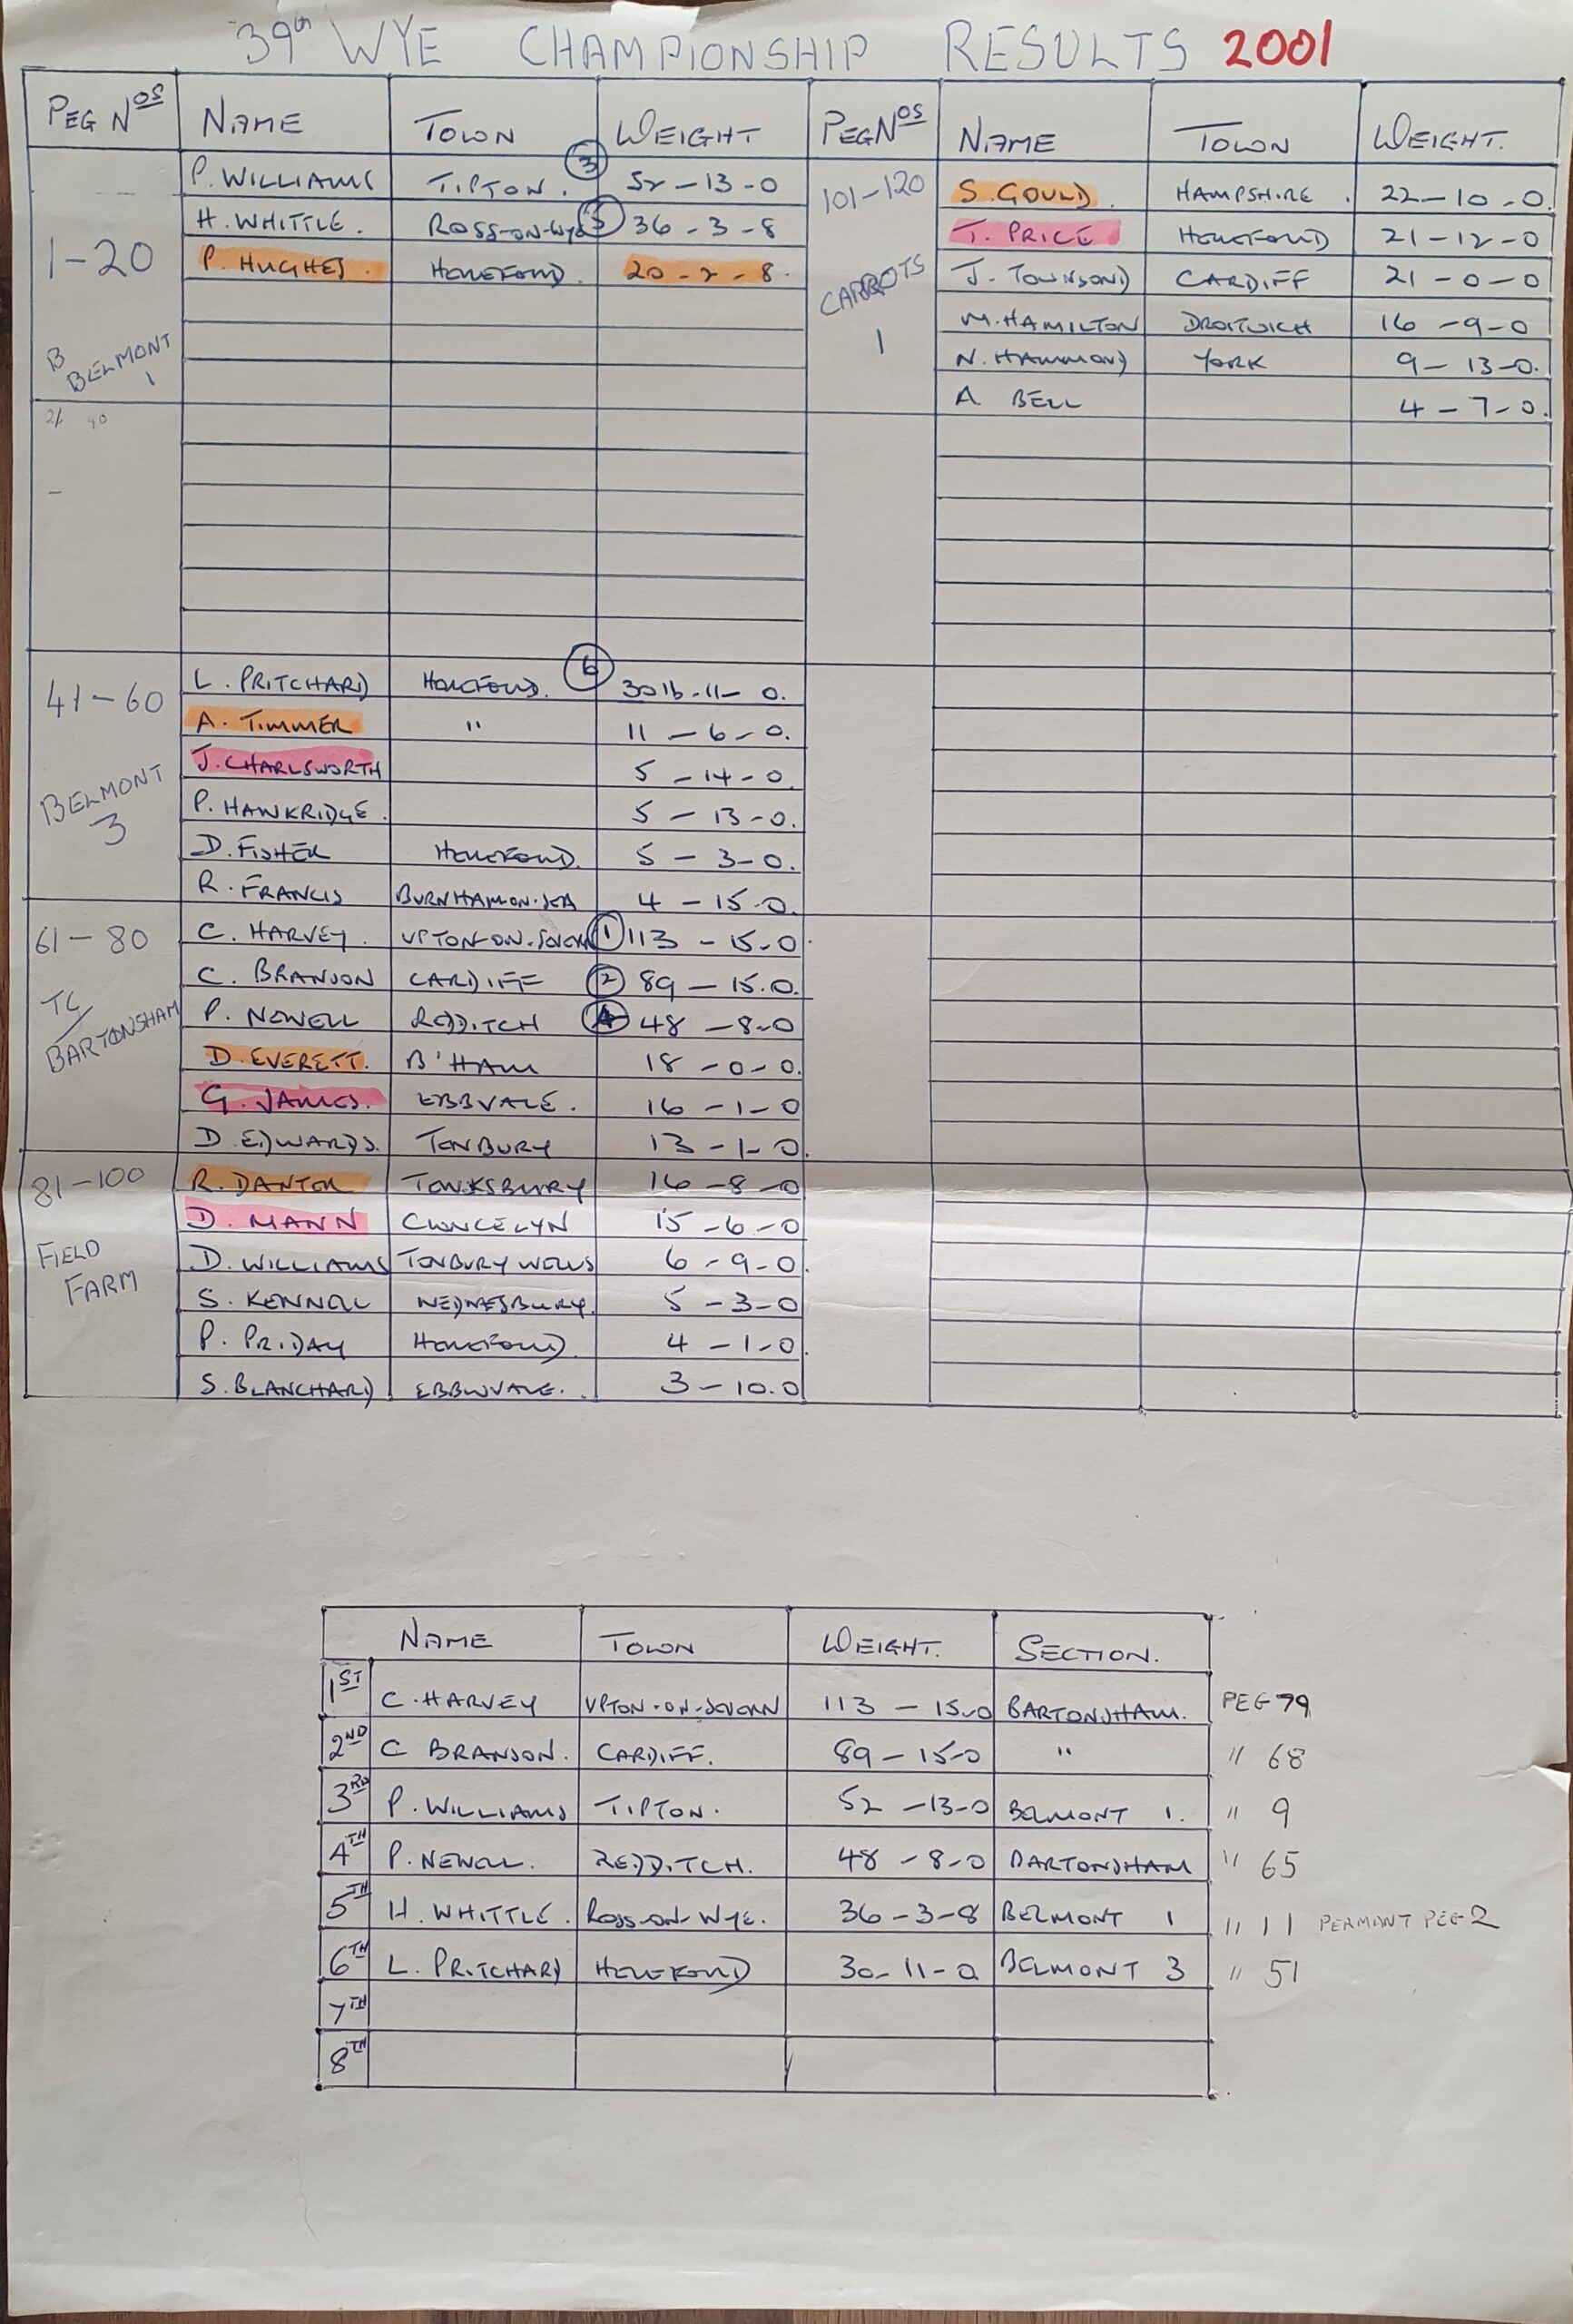 39th WYE CHAMPIONSHIP RESULTS 2001
PEG NOS NAME TOWN WEIGHT PEG NOS NAME TOWN WEIGHT.
1-20
B BELMONT
1
P. WILLIAMS TIPTON. 3 52-13-0
H. WHITTLE. ROSS-ON-WYE 5 36-3-8
P. HUGHES. HEREFORD. 20-2-8.
21 40
-
41-60
BELMONT
3
L. PRITCHARD HEREFORD. 6 30lb-11-0.
A. TIMMER " 11-6-0.
J. CHARLSWORTH 5-14-0.
P. HAWKRIDGE. 5-13-0.
D. FISHER HEREFORD. 5-3-0.
R. FRANCIS BURNHAM-ON-SEA 4-15-0.
61-80
TC/
BARTONSHAM
C. HARVEY. UPTON-ON-SEVERN 1 113-15-0
C. BRANSON CARDIFF 2 89-15.0.
P. NEWELL REDDITCH 4 48-8-0
D. EVERETT. B'HAM 18-0-0.
G. JAMES. EBBVALE. 16-1-0
D EDWARDS. TENBURY 13-1-0.
81-100
FIELD
FARM
R. DANTER TEWKSBURY 16-8-0
D. MANN CINCELYN 15-6-0
D. WILLIAMS TENBURY WELLS 6-9-0.
S. KENNELL WEDNESBURY. 5-3-0
P. PRIDAY HEREFORD. 4-1-0.
S. BLANCHARD EBBWVALE. 3-10.0
101-120
CARROTS
1
S. GOULD. HAMPSHIRE. 22-10-0.
T. PRICE HEREFORD 21-12-0
J. TOWNSEND CARDIFF 21-0-0
M. HAMILTON DROITWICH 16-9-0
N. HAMMOND YORK 9-13-0.
A BELL 4-7-0.
NAME TOWN WEIGHT. SECTION.
1ST C. HARVEY UPTON-ON-SEVERN 113-15-0 BARTONSHAM. PEG 79
2ND C BRANSON. CARDIFF. 89-15-0 " " 68
3RD P. WILLIAMS TIPTON. 52-13-0 BELMONT 1. " 9
4TH P. NEWELL. REDDITCH. 48-8-0 BARTONSHAM " 65
5TH H. WHITTLE. ROSS-ON-WYE. 36-3-8 BELMONT 1 " 11 PERMANT PEG 2
6TH L. PRITCHARD HEREFORD 30-11-0 BELMONT 3 " 51
7TH
8TH